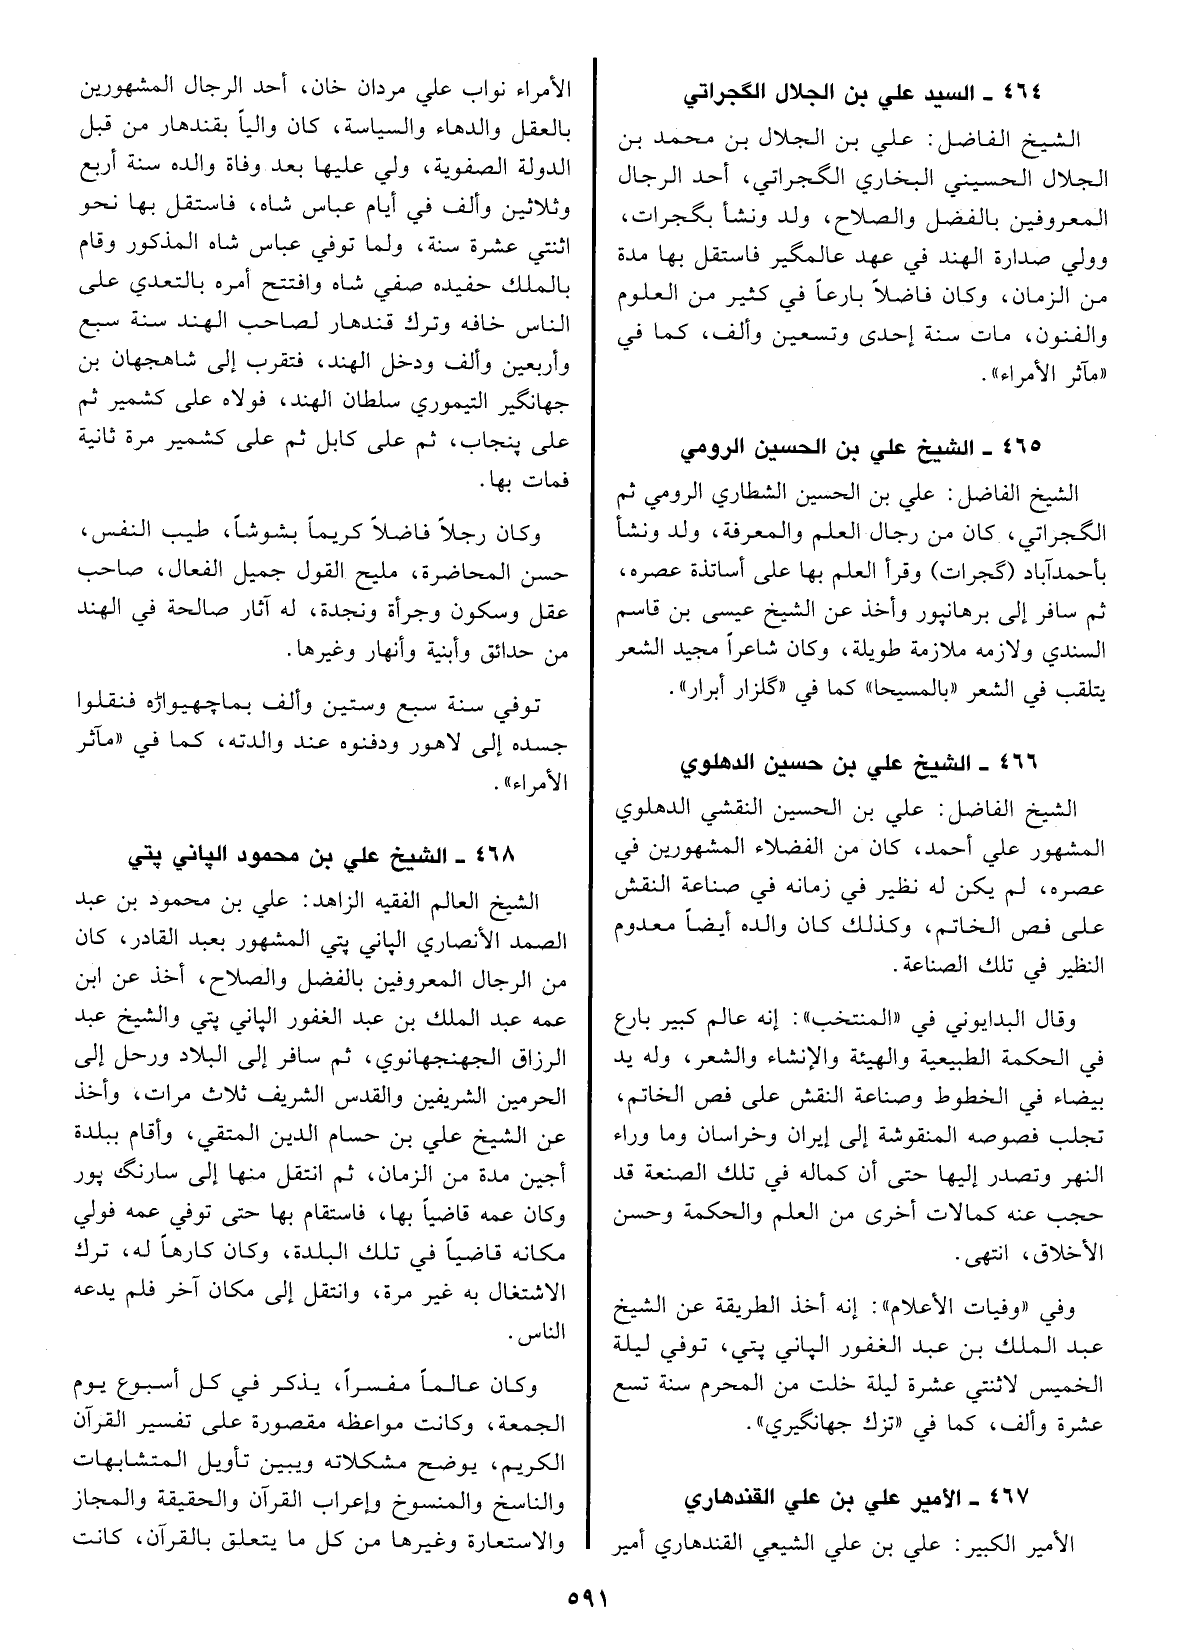 ٤٦٤ ـ السيد علي بن الجلال الگجراتي
الشيخ الفاضل: علي بن الجلال بن محمد بن
الجلال الحسيني البخاري الگجراتي، أحد الرجال
المعروفين بالفضل والصلاح، ولد ونشأ بگجرات،
وولي صدارة الهند في عهد عالمگير فاستقل بها مدة
من الزمان، وكان فاضلاً بارعاً في كثير من العلوم
والفنون، مات سنة إحدى وتسعين وألف، كما في
«مآثر الأمراء».
٤٦٥ ـ الشيخ علي بن الحسين الرومي
الشيخ الفاضل: علي بن الحسين الشطاري الرومي ثم
الگجراتي، كان من رجال العلم والمعرفة، ولد ونشأ
بأحمدآباد (گجرات) وقرأ العلم بها على أساتذة عصره،
ثم سافر إلى برهانپور وأخذ عن الشيخ عيسى بن قاسم
السندي ولازمه ملازمة طويلة، وكان شاعراً مجيد الشعر
يتلقب في الشعر «بالمسيحا» كما في «گلزار أبرار».
٤٦٦ ـ الشيخ علي بن حسين الدهلوي
الشيخ الفاضل: علي بن الحسين النقشي الدهلوي
المشهور علي أحمد، كان من الفضلاء المشهورين في
عصره، لم يكن له نظير في زمانه في صناعة النقش
على فص الخاتم، وكذلك كان والده أيضاً معدوم
النظير في تلك الصناعة.
وقال البدايوني في «المنتخب»: إنه عالم كبير بارع
في الحكمة الطبيعية والهيئة والإنشاء والشعر، وله يد
بيضاء في الخطوط وصناعة النقش على فص الخاتم،
تجلب فصوصه المنقوشة إلى إيران وخراسان وما وراء
النهر وتصدر إليها حتى أن كماله في تلك الصنعة قد
حجب عنه كمالات أخرى من العلم والحكمة وحسن
الأخلاق، انتهى.
وفي «وفيات الأعلام»: إنه أخذ الطريقة عن الشيخ
عبد الملك بن عبد الغفور الپاني پتي، توفي ليلة
الخميس لاثنتي عشرة ليلة خلت من المحرم سنة تسع
عشرة وألف، كما في «تزك جهانگيري».
٤٦٧ ـ الأمير علي بن علي القندهاري
الأمير الكبير: علي بن علي الشيعي القندهاري أمير
الأمراء نواب علي مردان خان، أحد الرجال المشهورين
بالعقل والدهاء والسياسة، كان والياً بقندهار من قبل
الدولة الصفوية، ولي عليها بعد وفاة والده سنة أربع
وثلاثين وألف في أيام عباس شاه، فاستقل بها نحو
اثنتي عشرة سنة، ولما توفي عباس شاه المذكور وقام
بالملك حفيده صفي شاه وافتتح أمره بالتعدي على
الناس خافه وترك قندهار لصاحب الهند سنة سبع
وأربعين وألف ودخل الهند، فتقرب إلى شاهجهان بن
جهانگير التيموري سلطان الهند، فولاه على كشمير ثم
على پنجاب، ثم على كابل ثم على كشمير مرة ثانية
فمات بها.
وكان رجلاً فاضلاً كريماً بشوشاً، طيب النفس،
حسن المحاضرة، مليح القول جميل الفعال، صاحب
عقل وسكون وجرأة ونجدة، له آثار صالحة في الهند
من حدائق وأبنية وأنهار وغيرها.
توفي سنة سبع وستين وألف بماچهيواڑه فنقلوا
جسده إلى لاهور ودفنوه عند والدته، كما في «مآثر
الأمراء».
٤٦٨ ـ الشيخ علي بن محمود الپاني پتي
الشيخ العالم الفقيه الزاهد: علي بن محمود بن عبد
الصمد الأنصاري الپاني پتي المشهور بعبد القادر، كان
من الرجال المعروفين بالفضل والصلاح، أخذ عن ابن
عمه عبد الملك بن عبد الغفور الپاني پتي والشيخ عبد
الرزاق الجهنجهانوي، ثم سافر إلى البلاد ورحل إلى
الحرمين الشريفين والقدس الشريف ثلاث مرات، وأخذ
عن الشيخ علي بن حسام الدين المتقي، وأقام ببلدة
أجين مدة من الزمان، ثم انتقل منها إلى سارنگ پور
وكان عمه قاضياً بها، فاستقام بها حتى توفي عمه فولي
مكانه قاضياً في تلك البلدة، وكان كارهاً له، ترك
الاشتغال به غير مرة، وانتقل إلى مكان آخر فلم يدعه
الناس.
وكان عالماً مفسراً، يذكر في كل أسبوع يوم
الجمعة، وكانت مواعظه مقصورة على تفسير القرآن
الكريم، يوضح مشكلاته ويبين تأويل المتشابهات
والناسخ والمنسوخ وإعراب القرآن والحقيقة والمجاز
والاستعارة وغيرها من كل ما يتعلق بالقرآن، كانت
٥٩١